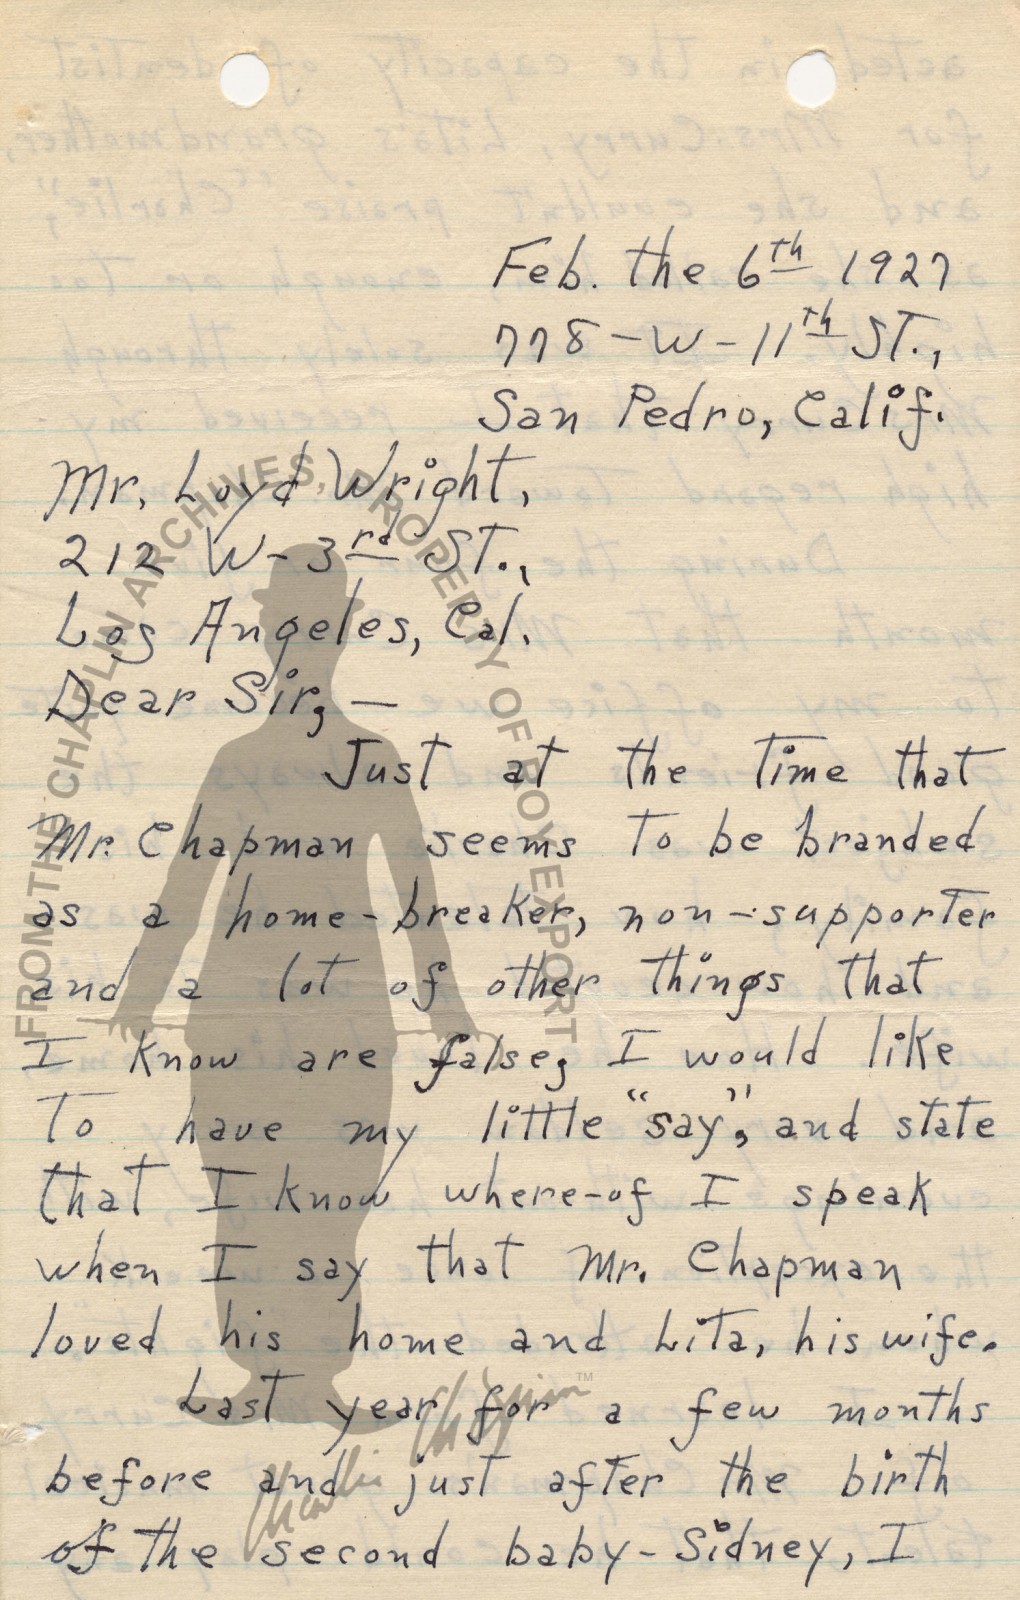 Feb. the 6th 1927
778-W-11th ST.,
San Pedro, Calif.
Mr. Loyd Wright,
212 W-3rd ST.,
Los Angeles, Cal.
Dear Sir, —
Just at the time that
Mr. Chapman seems to be branded
as a home-breaker, non-supporter
and a lot of other things that
I know are false; I would like
To have my little "say", and state
that I know where-of I speak
when I say that Mr. Chapman
loved his home and Lita, his wife.
Last year for a few months
before and just after the birth
of the second baby-Sidney, I
FROM THE CHAPLIN ARCHIVES, PROPERTY OF ROY EXPORT
Charlie Chaplin™